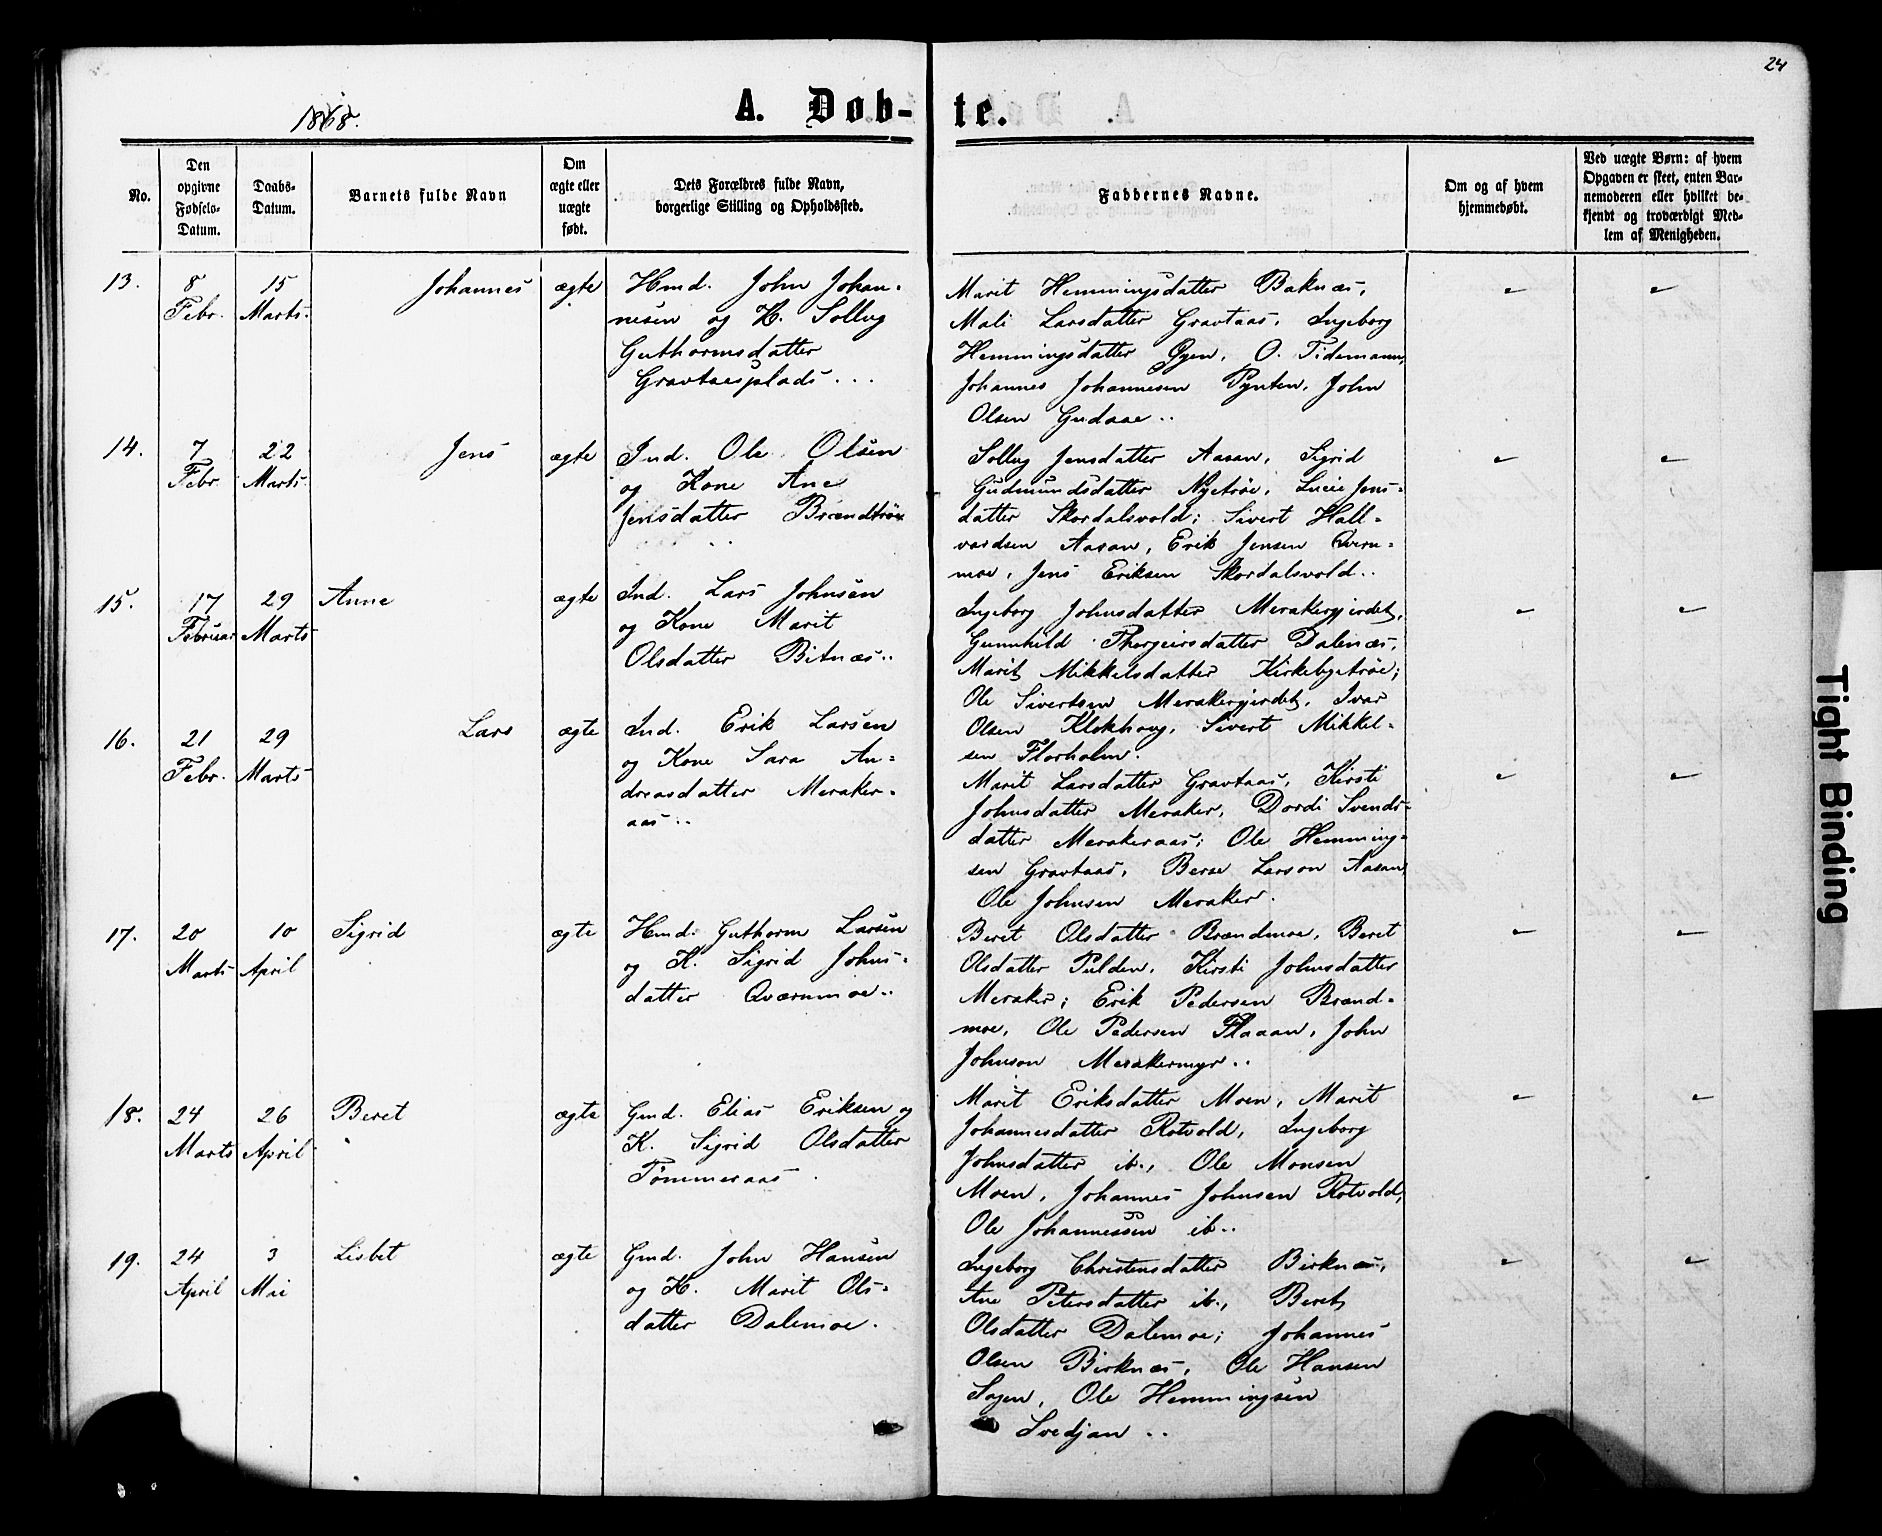 24
1868.
A. Døb-te.
No.
Den opgivne Fødsels-Datum.
Daabs-Datum.
Barnets fulde Navn
Om ægte eller uægte født.
Dets Forældres fulde Navn, borgerlige Stilling og Opholdssted.
Faddernes Navne.
Om og af hvem hjemmedøbt.
Ved uægte Børn: af hvem Opgaven er skeet, enten Barnemoderen eller hvilket bekjendt og troværdigt Medlem af Menigheden.
13. 8 Febr. 15 Marts. Johannes ægte
Hmd. John Johan-
nesen og K. Solleg
Guthormsdatter
Gravtaasplads...
Marit Hemmingsdatter Baknæs,
Mali Larsdatter Gravtaas, Ingeborg
Hemmingsdatter Øyen, O. Tidemann,
Johannes Johannesen Pynten, John
Olsen Gudaae..
14. 7 Febr. 22 Marts. Jens ægte
Ind. Ole Olsen
og Kone Ane
Jensdatter Brændtrøe
Solleg Jensdatter Aasan, Sigrid
Gudmundsdatter Nytrøe, Lucie Jens-
datter Skordalsvold; Sivert Hall-
vardsen Aasan, Erik Jensen Qvern-
moe, Jens Eriksen Skordalsvold..
15. 17 Februar 29 Marts Anne ægte
Ind. Lars Johnsen
og Kone Marit
Olsdatter Bitnæs..
Ingeborg Johnsdatter Merakergjerdet,
Gunnhild Thorgeirsdatter Dalenæs,
Marit Mikkelsdatter Kirkebytrøe;
Ole Sivertsen Merakergjerdet, Ivar
Olsen Klokhaug, Sivert Mikkel-
sen Florholm.
16. 21 Febr. 29 Marts Lars ægte
Ind. Erik Larsen
og Kone Sara An-
dreasdatter Meraker-
aas..
Marit Larsdatter Gravtaas, Kirsti
Johnsdatter Meraker, Dordi Svends-
datter Merakeraas; Ole Hemming-
sen Gravtaas, Berse Larson Aasan,
Ole Johnsen Meraker.
17. 20 Marts 10 April Sigrid ægte
Hmd. Guthorm Larsen
og K. Sigrid Johns-
datter Qværnmoe..
Beret Olsdatter Brændmoe, Beret
Olsdatter Pulden, Kirsti Johnsdatter
Meraker; Erik Pedersen Brænd-
moe, Ole Pedersen Flaaan, John
Johnson Merakermyr..
18. 24 Marts 26 April Beret ægte
Gmd. Elias Eriksen og
K. Sigrid Olsdatter
Tømmeraas.
Marit Eriksdatter Moen, Marit
Johannesdatter Rotvold, Ingeborg
Johnsdatter ib., Ole Monsen
Moen, Johannes Johnsen Rotvold,
Ole Johannessen ib..
19. 24 April 3 Mai Lisbet ægte
Gmd. John Hansen
og K. Marit Ols-
datter Dalemoe.
Ingeborg Christensdatter Birknæs,
Ane Petersdatter ib., Beret
Olsdatter Dalemoe; Johannes
Olsen Birknæs, Ole Hansen
Sagen, Ole Hemmingsen
Svedjan..
Tight Binding